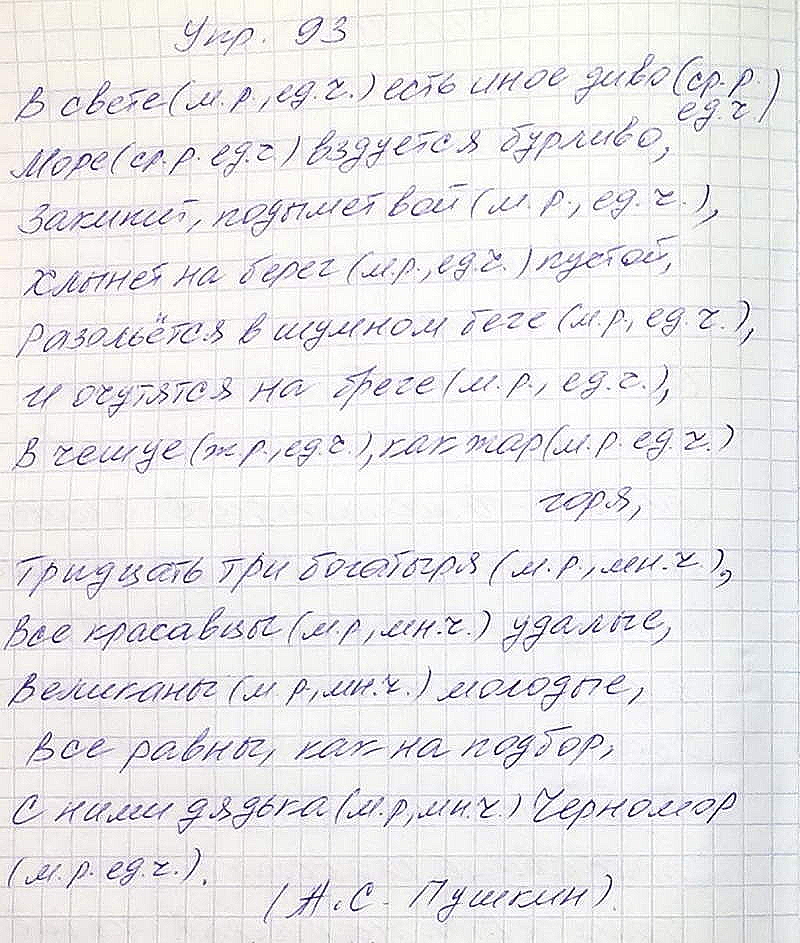 Упр. 93
В свете (м.р., ед.ч.) есть иное диво (ср.р.
ед.ч.)
Море (ср.р. ед.ч) вздуется бурливо,
Закипит, подымет вой (м.р., ед.ч.),
Хлынет на берег (м.р., ед.ч.) пустой,
Разольётся в шумном беге (м.р., ед.ч.),
И очутятся на бреге (м.р., ед.ч.),
В чешуе (ж.р., ед.ч.), как жар (м.р. ед.ч.)
горя,
Тридцать три богатыря (м.р., мн.ч.),
Все красавцы (м.р., мн.ч.) удалые,
Великаны (м р., мн.ч.) молодые,
Все равны, как на подбор,
С ними дядька (м.р., мн.ч.) Черномор
(м.р. ед.ч.).
(А.С. Пушкин).